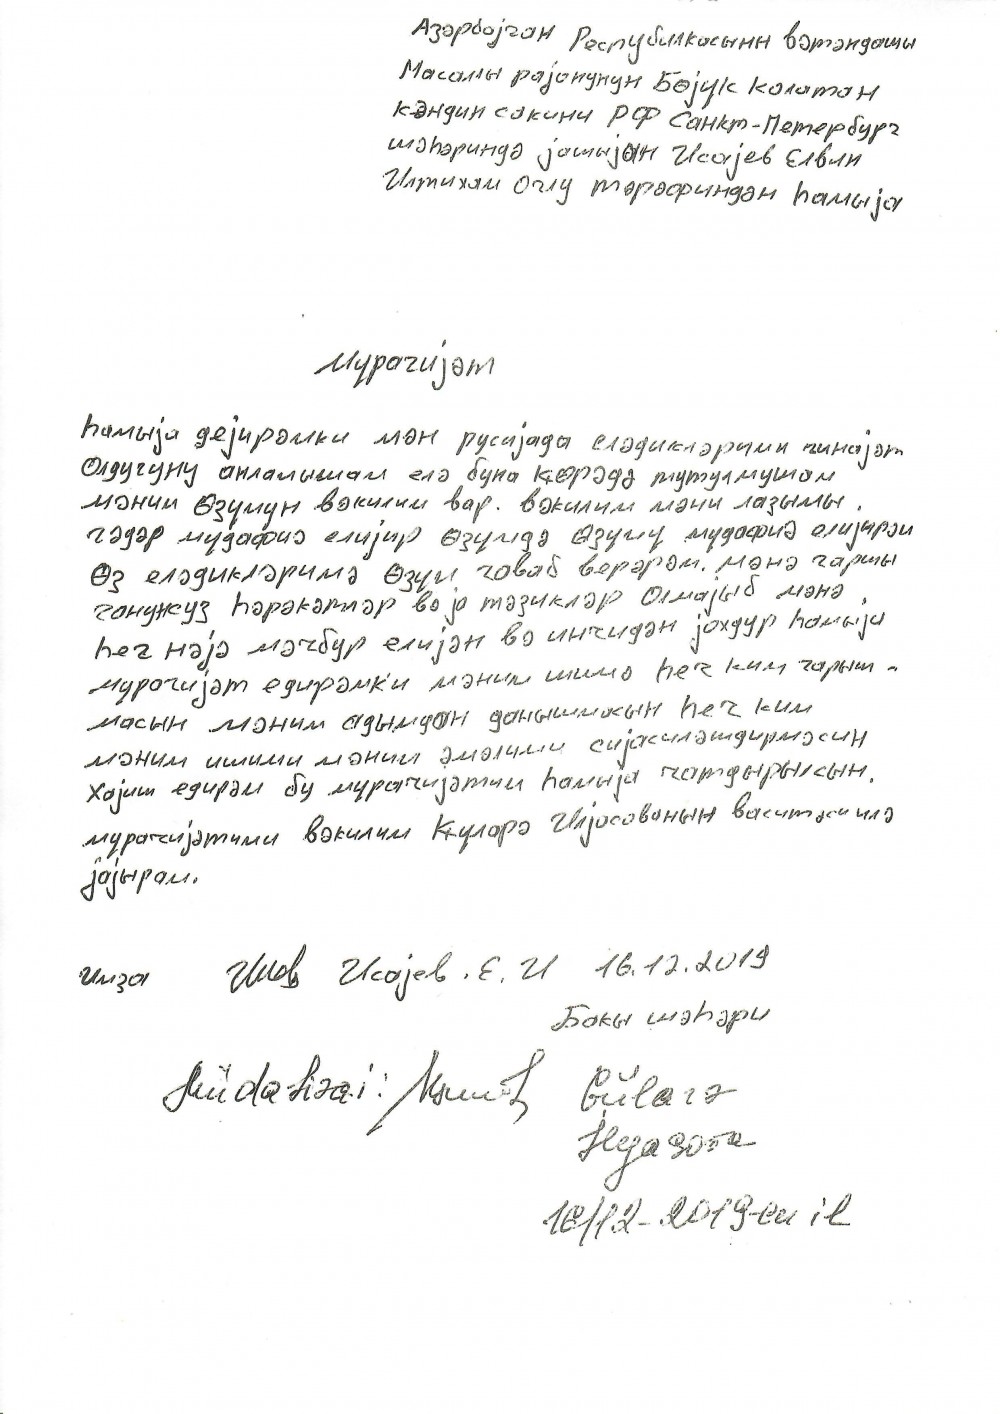 Азәрбајҹан Республикасынн вәтәндашы
Масаллы рајонунун Бөјук Колатан
кәндин сакини РФ Санкт-Петербург
шәһәриндә јашыјан Исајев Елвин
Илтихам Оглу тәрәфиндән һамыја
Мурачијәт
һамыја дејирәмки мән русијада еләдикләрими чинајәт
Олдугуну анламышам елә буна ҝөрәдә тутулмушам
мәним Өзумун вәкилим вар. вәкилим мәни лазымы
гәдәр мудафиә елијир Өзумдә Өзуму мудафиә елијирәм
Өз еләдикләримә Өзум ҹаваб верәрәм. мәнә гаршы
ганунсуз һәрәкәтләр вә јә тәзикләр Олмајыб мәнә
һеч нәјә мәчбур елијән вә инчидән јохдур һамыја
мурачијәт едирәмки мәним ишимә һеч ким гарыш-
масын мәним адымдан данышмасын һеч ким
мәним ишими мәним әмәлими сијасиләшдирмәсин
Хајиш едирәм бу мурачијәтим һамыја чатдырылсын.
мурачијәтими вәкилим Ҝуларә Илјасованын васитәси илә
јајырам.
имза Исајев . Е. И 16.12.2019
Бакы шәһәри
Müdafiəçi: Gülarə
İlyasova
16/12-2019-cu il